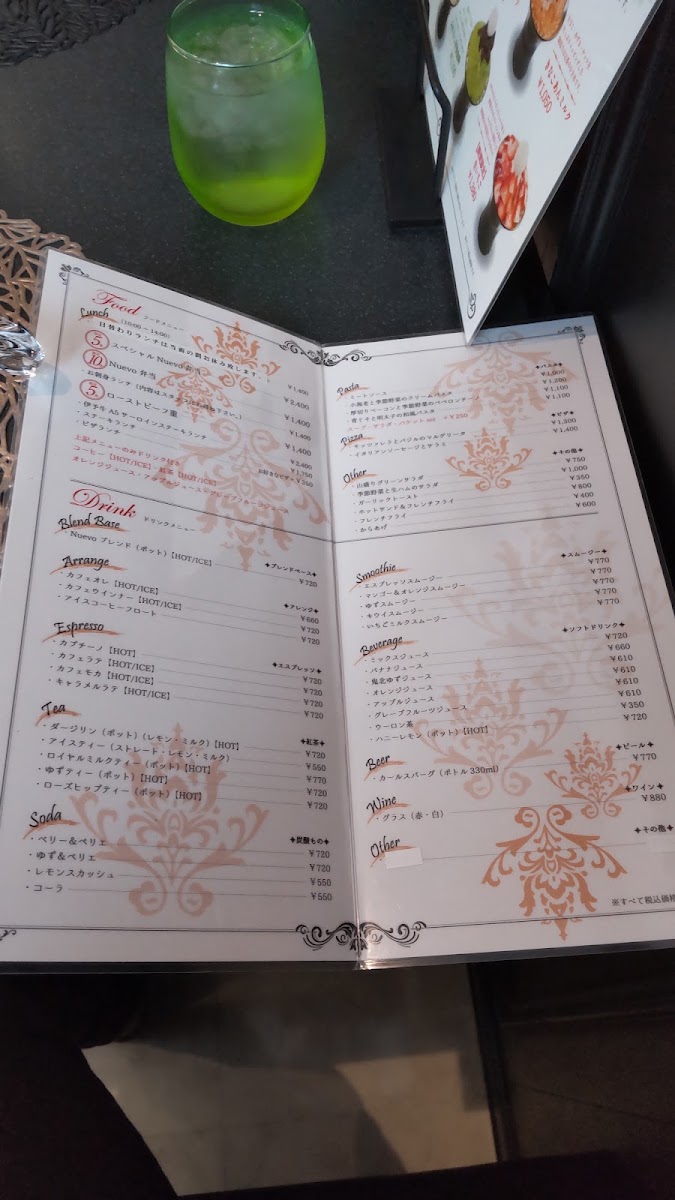 きなこあんミルク
¥1,050
Food フードメニュー
Lunch (10:00~14:00)
日替わりランチは当面の間お休み致します。
5 スペシャル Nuevo 弁当 ¥1,400
10 Nuevo 弁当 ¥2,400
5 ローストビーフ重 ¥1,400
・伊予牛 A5 サーロインステーキランチ
・ステーキランチ
・ピザランチ
上記メニューのみドリンク付き
コーヒー【HOT/ICE】 紅茶【HOT/ICE】
Pasta ✦パスタ✦
・ミートソース ¥1,000
・小海老と季節野菜のクリームパスタ ¥1,200
・厚切りベーコンと季節野菜のペペロンチーノ ¥1,100
・青じそと明太子の和風パスタ ¥1,100
スープ・サラダ・バケット set +¥250
Pizza ✦ピザ✦
・モッツァレラとバジルのマルゲリータ ¥1,300
・イタリアンソーセージとサラミ ¥1,400
Other ✦その他✦
・山盛りグリーンサラダ ¥750
・季節野菜と生ハムのサラダ ¥1,000
・ガーリックトースト ¥350
・ホットサンド&フレンチフライ ¥800
・フレンチフライ ¥400
・からあげ ¥600
Drink ドリンクメニュー
Blend Base ✦ブレンドベース✦
・Nuevo ブレンド(ポット)【HOT/ICE】 ¥720
Arrange ✦アレンジ✦
・カフェオレ【HOT/ICE】 ¥660
・カフェウインナー【HOT/ICE】 ¥720
・アイスコーヒーフロート ¥720
Espresso ✦エスプレッソ✦
・カプチーノ【HOT】 ¥720
・カフェラテ【HOT/ICE】 ¥720
・カフェモカ【HOT/ICE】 ¥720
・キャラメルラテ【HOT/ICE】 ¥720
Tea ✦紅茶✦
・ダージリン(ポット)(レモン・ミルク)【HOT】 ¥720
・アイスティー(ストレート・レモン・ミルク) ¥550
・ロイヤルミルクティー(ポット)【HOT】 ¥770
・ゆずティー(ポット)【HOT】 ¥720
・ローズヒップティー(ポット)【HOT】 ¥720
Soda ✦炭酸もの✦
・ベリー&ペリエ ¥720
・ゆず&ペリエ ¥720
・レモンスカッシュ ¥550
・コーラ ¥550
Smoothie ✦スムージー✦
・エスプレッソスムージー ¥770
・マンゴー&オレンジスムージー ¥770
・ゆずスムージー ¥770
・キウイスムージー ¥770
・いちごミルクスムージー
Beverage ✦ソフトドリンク✦
・ミックスジュース ¥720
・バナナジュース ¥660
・鬼北ゆずジュース ¥610
・オレンジジュース ¥610
・アップルジュース ¥610
・グレープフルーツジュース ¥610
・ウーロン茶 ¥350
・ハニーレモン(ポット)【HOT】 ¥720
Beer ✦ビール✦
・カールスバーグ(ボトル 330ml) ¥770
Wine ✦ワイン✦
・グラス(赤・白) ¥880
Other ✦その他✦
※すべて税込価格